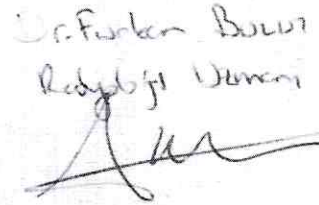 Dr. Furkan BULUT
Radyoloji Uzmanı